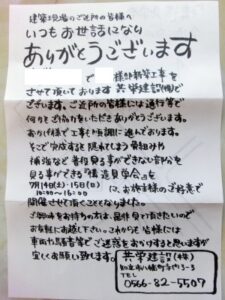 建築現場のご近所の皆様へ
いつもお世話になり
ありがとうございます
で 様邸新築工事を
させて頂いております 共学建設(株)で
ございます。ご近所の皆様には通行等で
何かとご協力をいただきありがとうございます。
おかげ様で工事も順調に進んでおります。
そこで完成すると隠れてしまう骨組みや
補強など普段見る事ができない部分を
見る事ができる『構造見学会』を
7月14日(土)・15日(日)に、お施主様のご好意で
10:00〜16:00
開催させて頂くことになりました。
ご興味をお持ちの方は、是非見て頂きたいので
お気軽にお越し下さい。これからも皆様には
車両や騒音等でご迷惑をおかけすると思いますが
宜しくお願い致します。
共学建設(株)
TEL
0566-82-5507